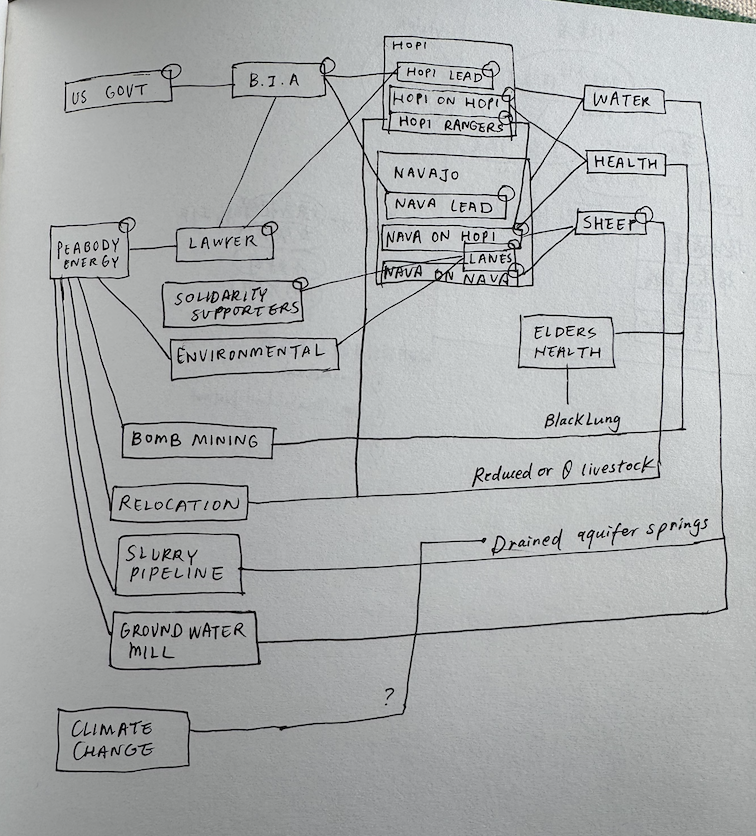 HOPI
US GOVT
B.I.A
HOPI LEAD
HOPI ON HOPI
WATER
HOPI RANGERS
NAVAJO
HEALTH
NAVA LEAD
PEABODY
ENERGY
LAWYER
NAVA ON HOPI
SHEEP
LANES
NAVA ON NAVA
SOLIDARITY
SUPPORTERS
ENVIRONMENTAL
ELDERS
HEALTH
Black Lung
BOMB MINING
Reduced or 0 livestock
RELOCATION
Drained aquifer springs
SLURRY
PIPELINE
GROUND WATER
MILL
?
CLIMATE
CHANGE